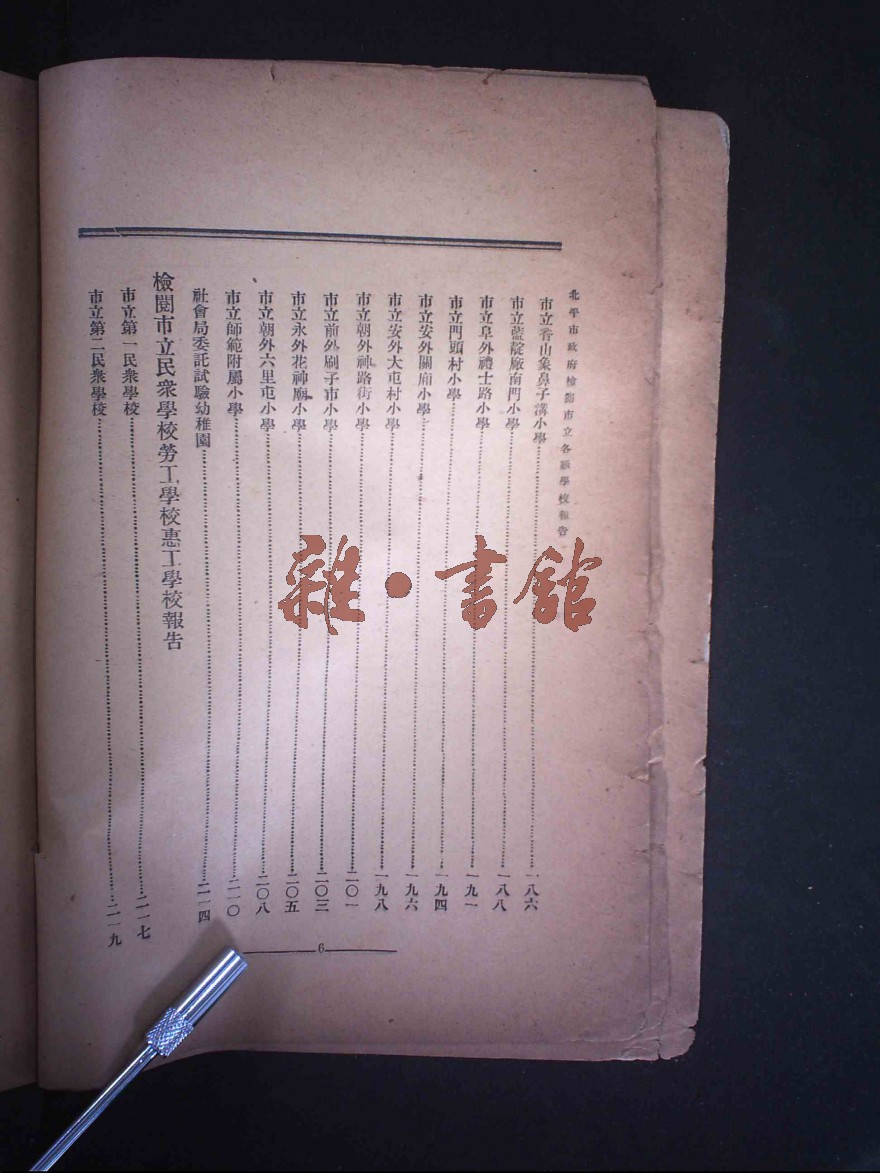 北平市政府檢閱市立各級學校報告
市立香山象鼻子溝小學……一八六
市立藍靛廠南門小學……一八八
市立阜外禮士路小學……一九一
市立門頭村小學……一九四
市立安外關廟小學……一九六
市立安外大屯村小學……一九八
市立朝外神路街小學……二〇一
市立前外刷子市小學……二〇三
市立永外花神廟小學……二〇五
市立朝外六里屯小學……二〇八
市立師範附屬小學……二一〇
社會局委託試驗幼稚園……二一四
檢閱市立民衆學校勞工學校惠工學校報告
市立第一民衆學校……二一七
市立第二民衆學校……二一九
6
雜·書館